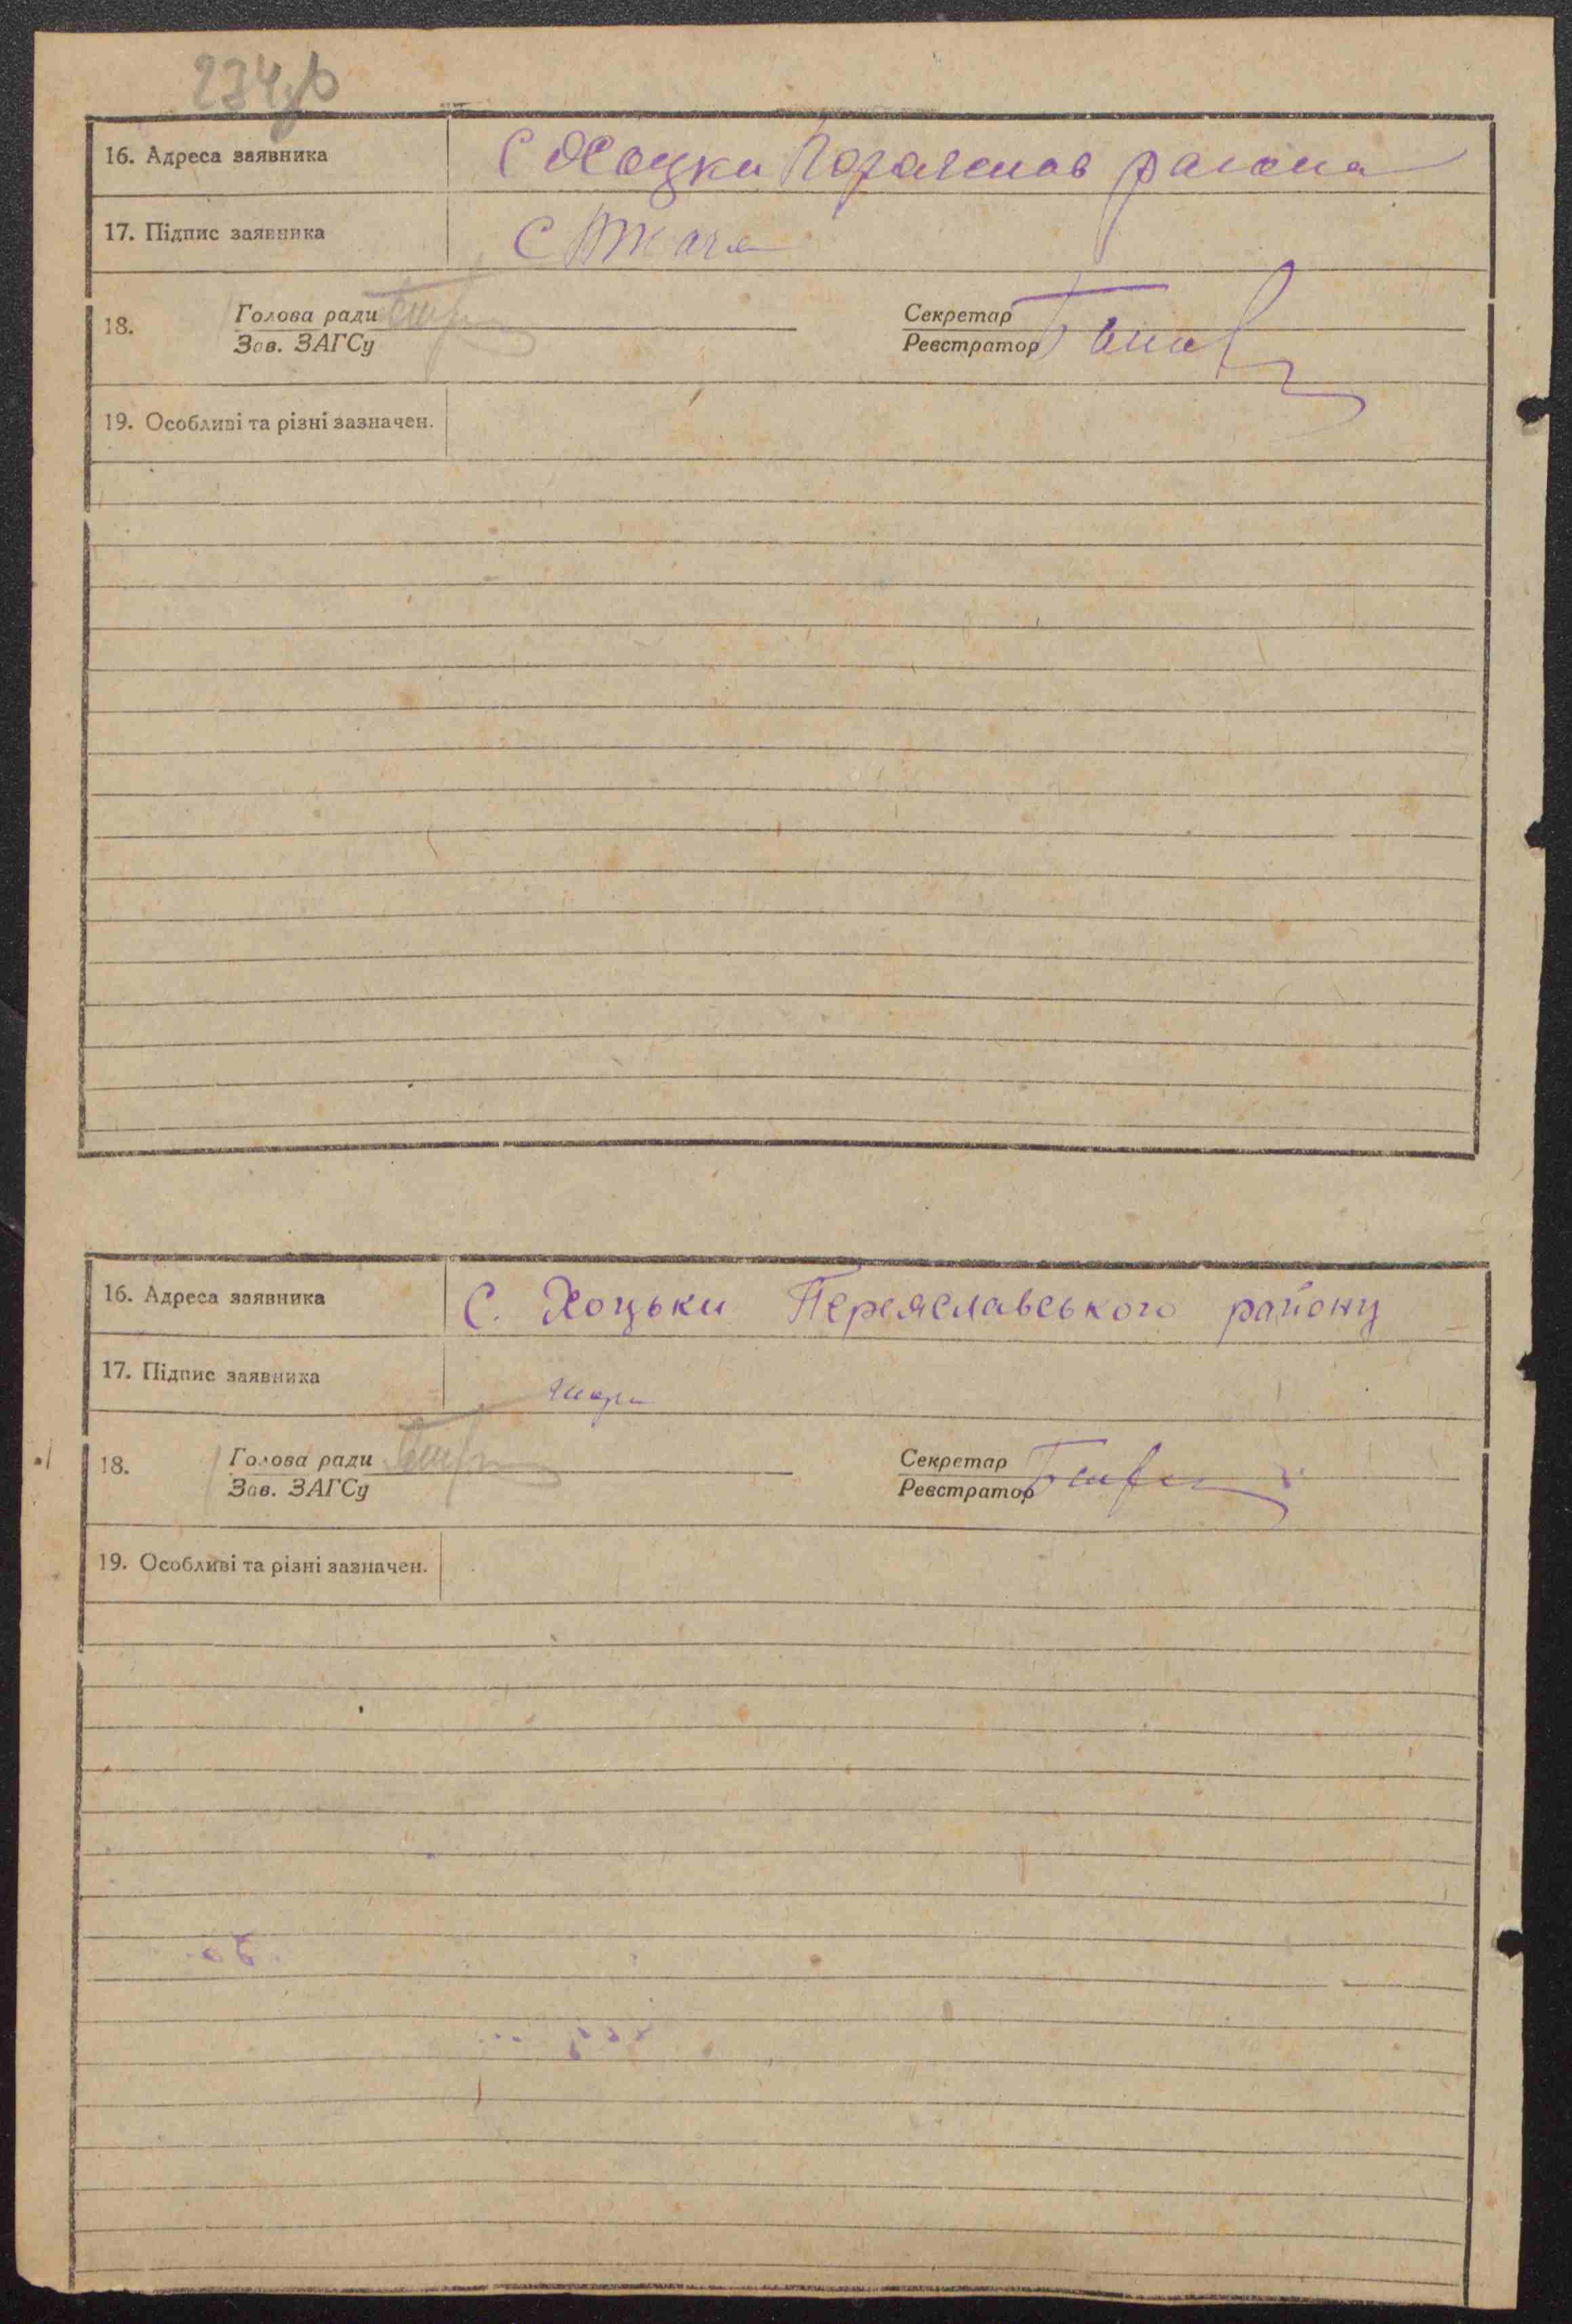 234зв
16. Адреса заявника С Хоцки района
17. Підпис заявника С Ткача
18. Голова ради Секретар
Зав. ЗАГСу Реєстратор
19. Особливі та різні зазначен.
16. Адреса заявника С. Хоцьки Переяславського району
17. Підпис заявника
18. Голова ради Секретар
Зав. ЗАГСу Реєстратор
19. Особливі та різні зазначен.